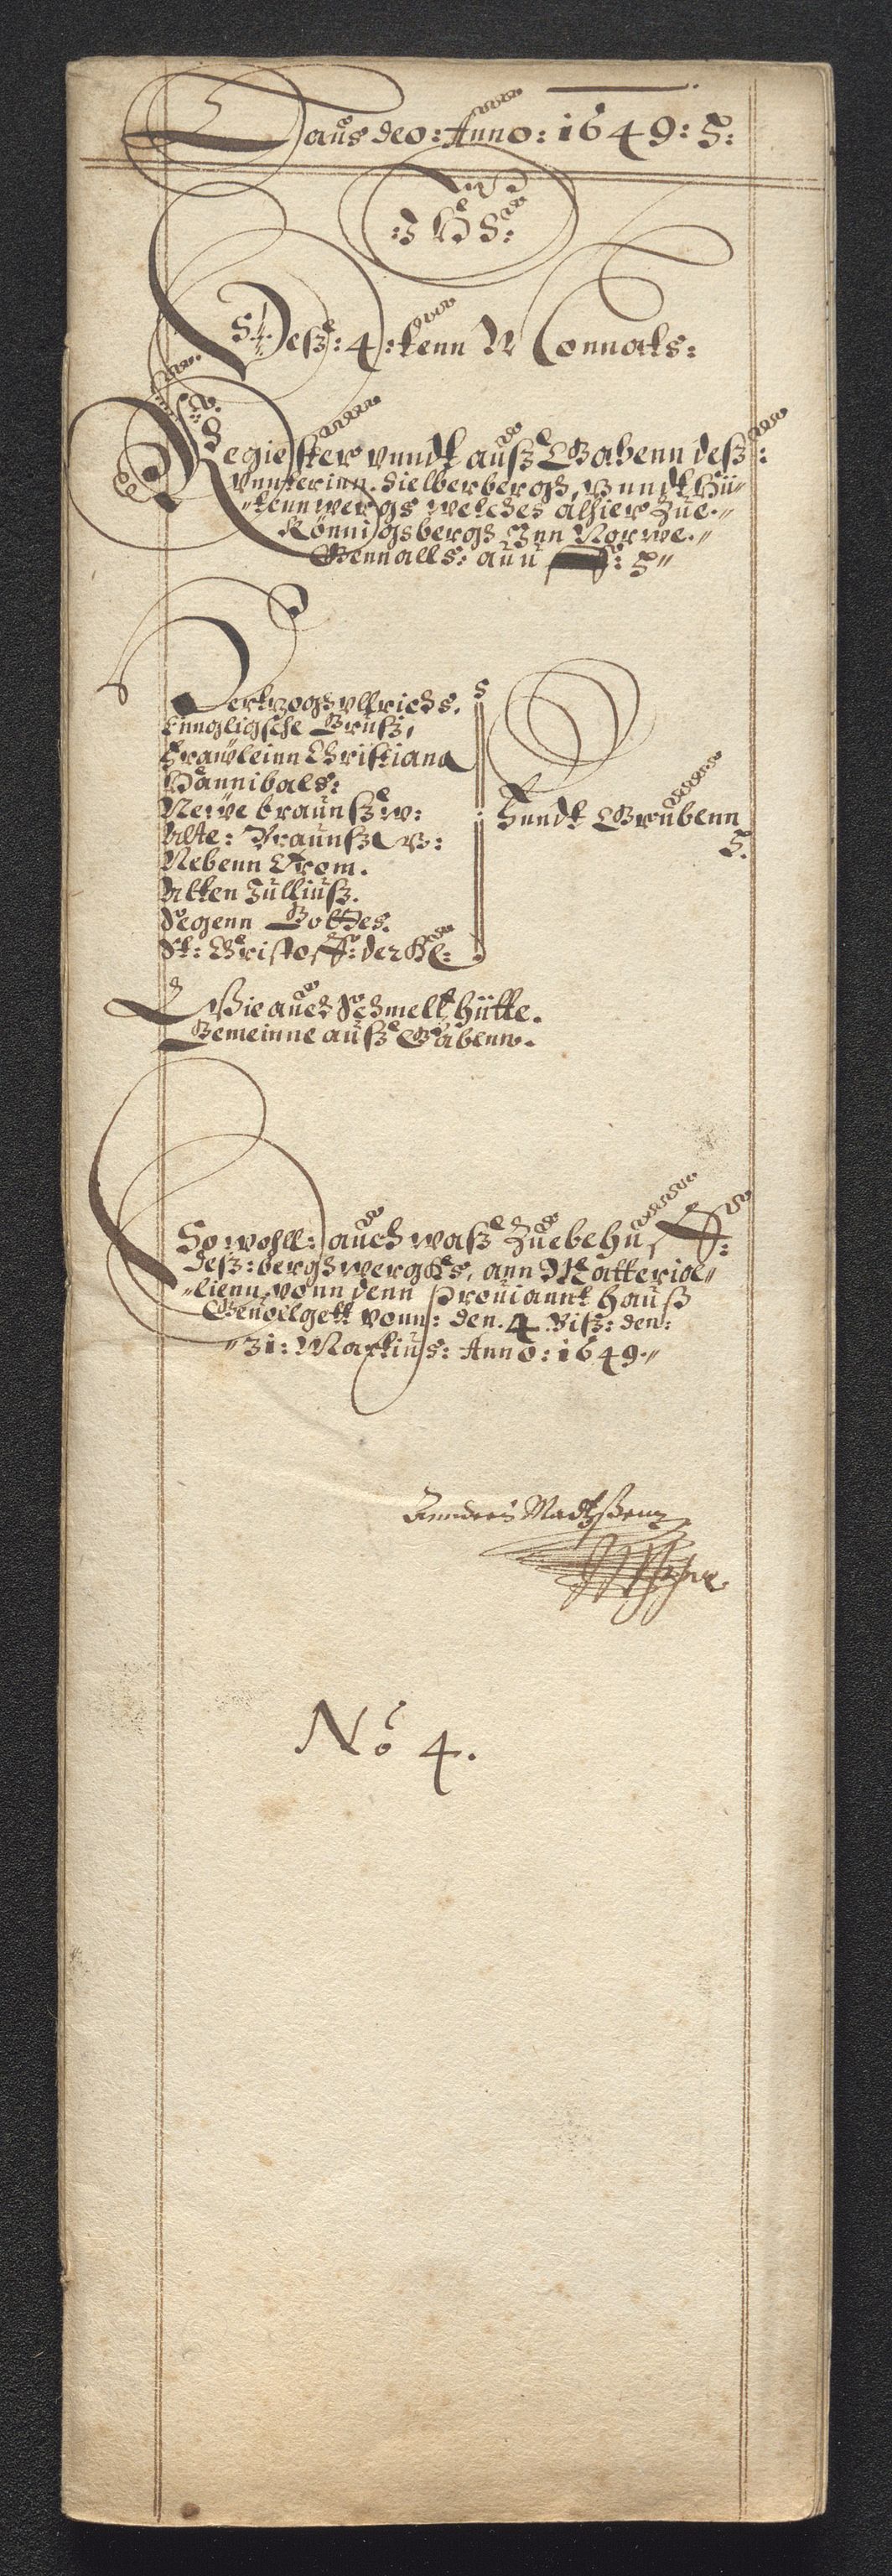 Laus deo: Anno: 1649: S:
: J H S :
Deß: 4: tenn Monnats:
Register vnndt auß Gabenn deß:
vnnterinn. Sielberbergs, Vnndt Hü"
"tennwergs welches alhier Zue."
Könnigsbergs Inn Norwe."
Gennalls: auu : S"
Hertzogs vllrichs.
Künngligsche Gruß,
Frauwleinn Christiana
Hannibals:
Neuve braunßw:
Alte: Braunßw:
Nebenn Trom.
Alten Julliuß.
Segenn Gottes.
St: Christoff: der Kl:
Fundt Grubenn
S.
Wie auch Schmeltz hütte.
Gemeinne auß Gabenn.
So wohll: auch waß Zue behuff:
deß: bergswergks, ann Matterial"
"lienn vonn denn Prouiannt hauß
Geuollgett vonn: den. 4 Biß: den:
"31: Martius: Anno: 1649."
Anders Madtzßenn
No 4.